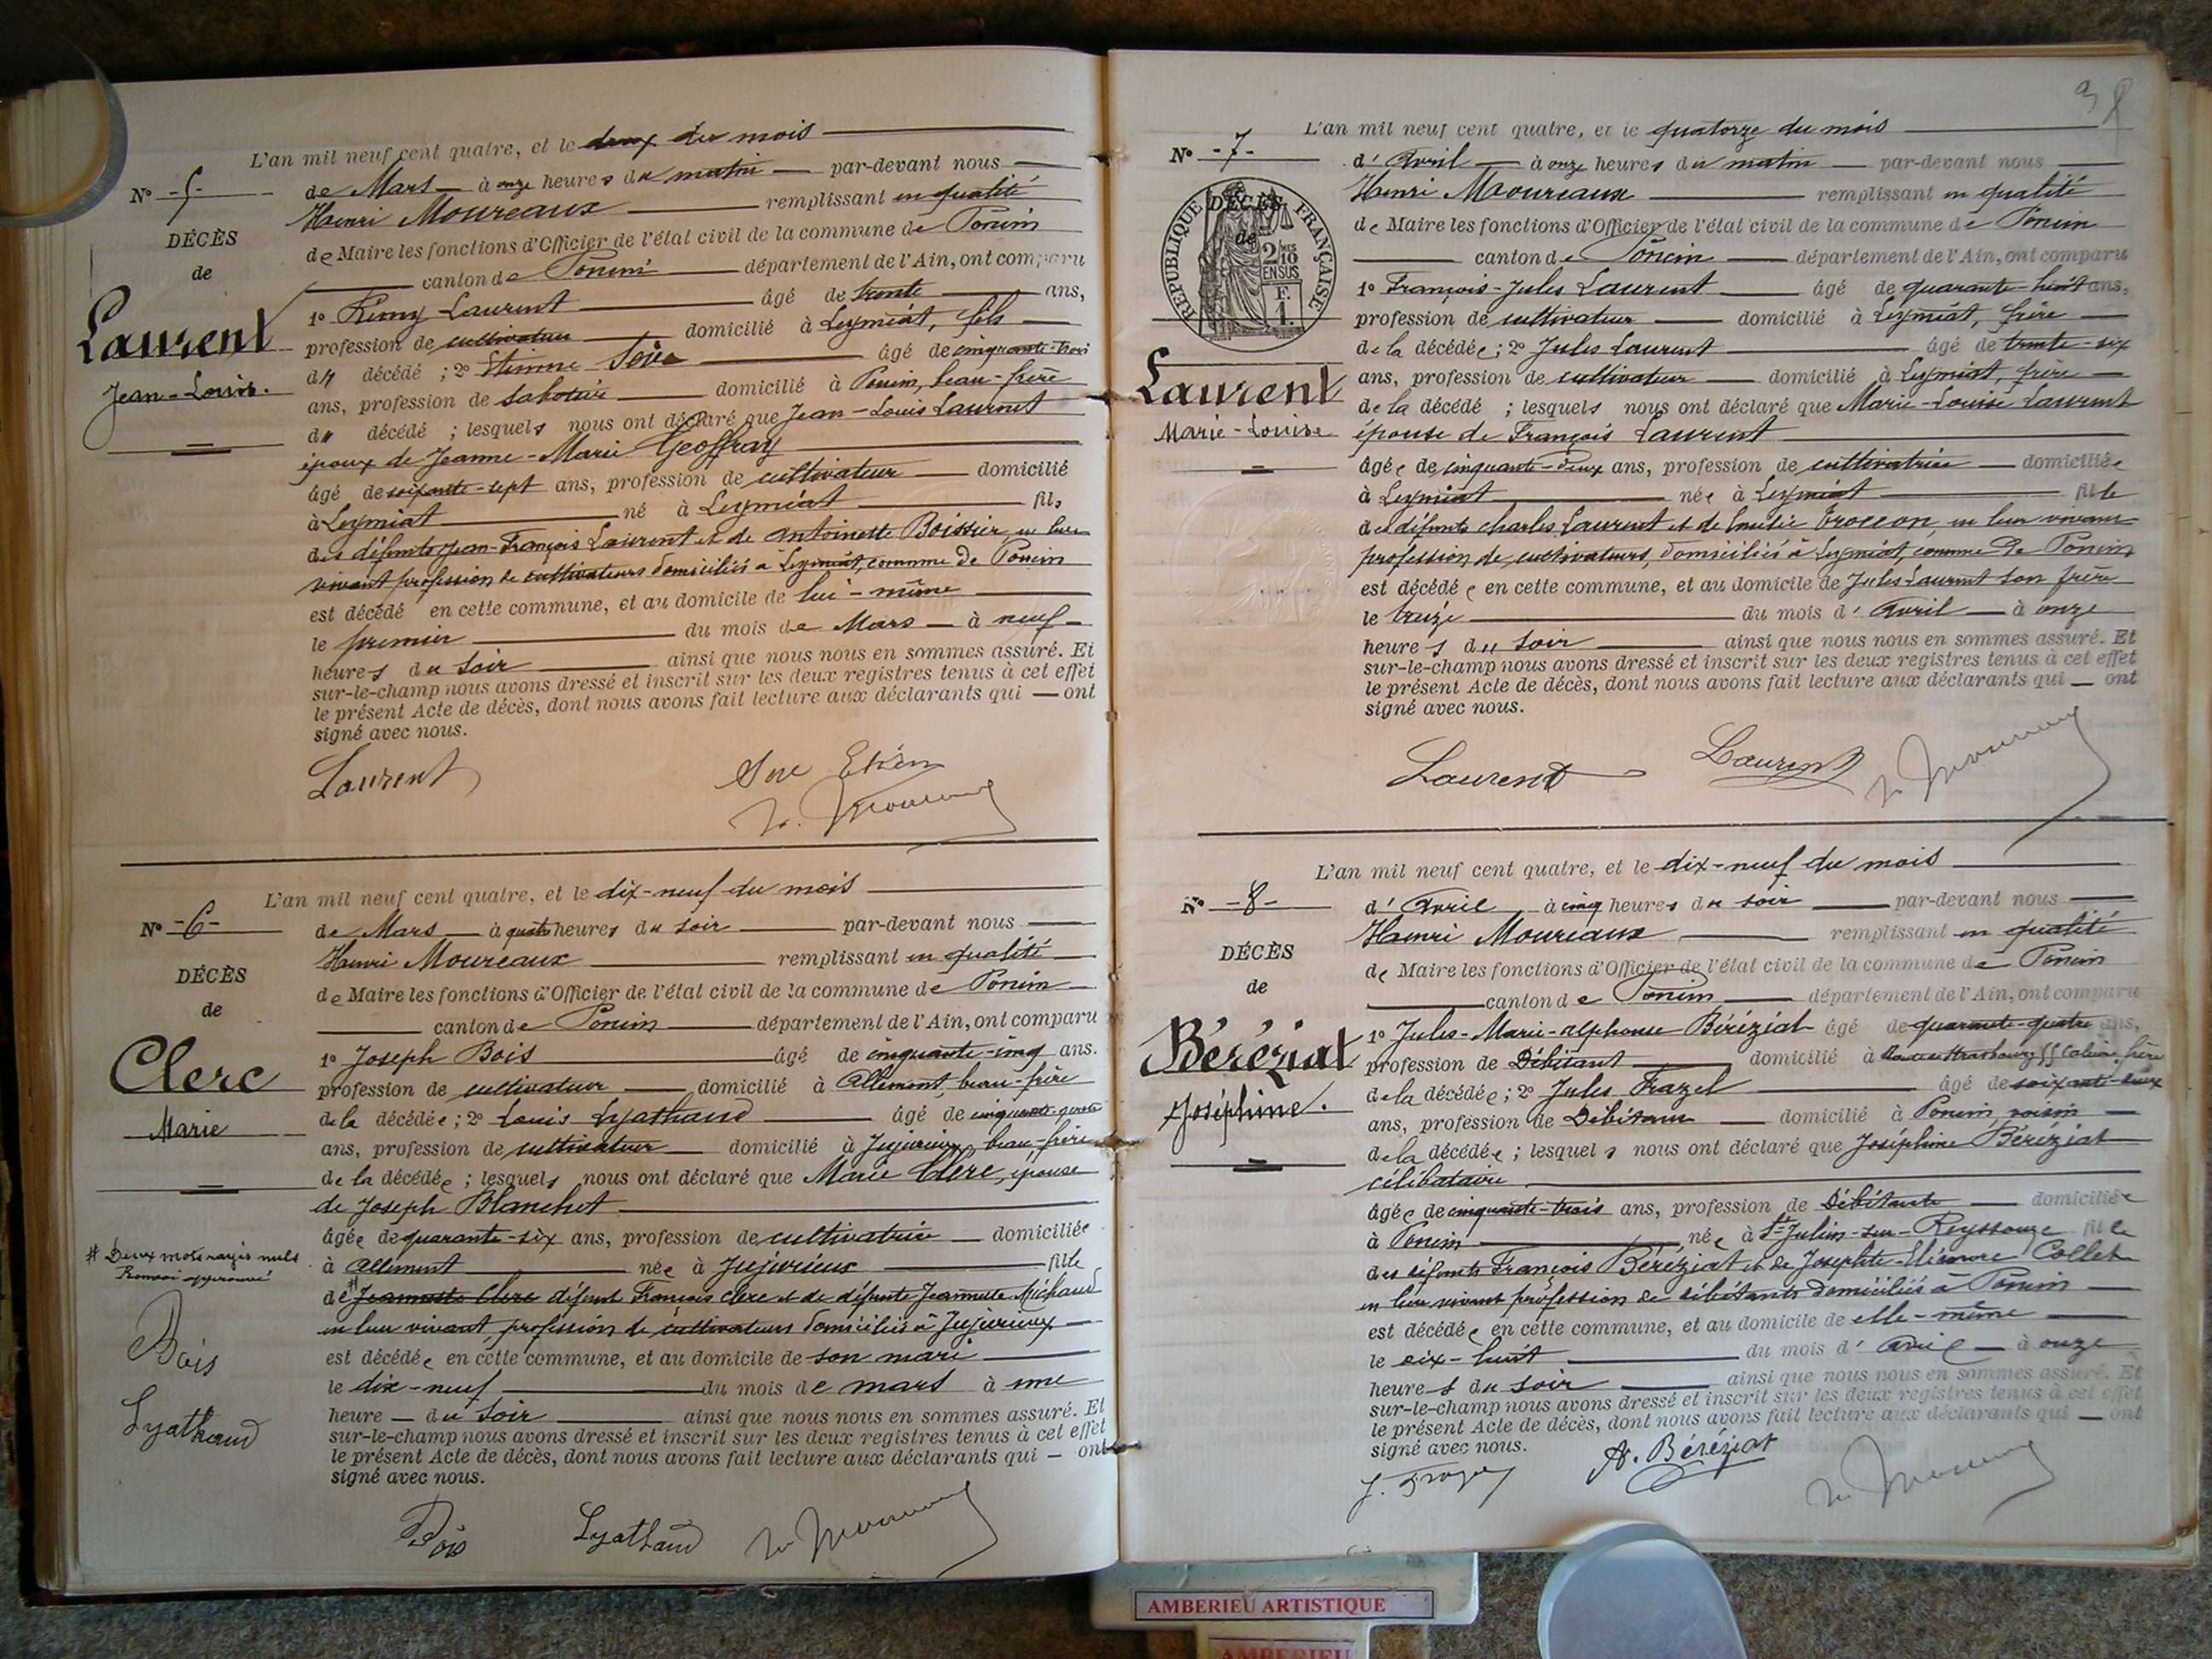 L'an mil neuf cent quatre, et le deux du mois
N° -5-
de Mars à onze heures du matin par-devant nous
Henri Moureaux remplissant en qualité
DÉCÈS
de Maire les fonctions d'Officier de l'état civil de la commune de Poncin
de
canton de Poncin département de l'Ain, ont comparu
Laurent
1° Rémy Laurent âgé de trente ans,
profession de cultivateur domicilié à Leymiat, fils
Jean-Louis.
du décédé ; 2° Etienne âgé de cinquante-trois
ans, profession de sabotier domicilié à Poncin, beau-frère
du décédé ; lesquels nous ont déclaré que Jean-Louis Laurent
époux de Jeanne-Marie Geoffray
âgé de soixante-sept ans, profession de cultivateur domicilié
à Leymiat né à Leymiat fils
des défunts Jean-François Laurent et de Antoinette Boissier, en leur
vivant profession de cultivateurs domiciliés à Leymiat, commune de Poncin
est décédé en cette commune, et au domicile de lui-même
le premier du mois de Mars à neuf
heures du soir ainsi que nous nous en sommes assuré. Et
sur-le-champ nous avons dressé et inscrit sur les deux registres tenus à cet effet
le présent Acte de décès, dont nous avons fait lecture aux déclarants qui ont
signé avec nous.
Laurent
L'an mil neuf cent quatre, et le dix-neuf du mois
N° -6-
de Mars à quatre heures du soir par-devant nous
Henri Moureaux remplissant en qualité
DÉCÈS
de Maire les fonctions d'Officier de l'état civil de la commune de Poncin
de
canton de Poncin département de l'Ain, ont comparu
Clerc
1° Joseph Bois âgé de cinquante-cinq ans.
profession de cultivateur domicilié à Allement, beau-frère
Marie
de la décédée ; 2° Louis Lyathaud âgé de cinquante-quatre
ans, profession de cultivateur domicilié à Jujurieux, beau-frère
de la décédée ; lesquels nous ont déclaré que Marie Clerc, épouse
de Joseph Blanchet
âgée de quarante-six ans, profession de cultivatrice domiciliée
# Deux mots rayés nuls
Renvoi approuvé
à Allement née à Jujurieux fille
de # Jeannette Clerc défunt François Clerc et de défunte Jeannette Michaud
en leur vivant, profession de cultivateurs domiciliés à Jujurieux
est décédée en cette commune, et au domicile de son mari
Bois
le dix-neuf du mois de mars à une
heure du soir ainsi que nous nous en sommes assuré. Et
Lyathaud
sur-le-champ nous avons dressé et inscrit sur les deux registres tenus à cet effet
le présent Acte de décès, dont nous avons fait lecture aux déclarants qui ont
signé avec nous.
Bois Lyathaud
L'an mil neuf cent quatre, et le quatorze du mois
N° -7-
d'Avril à onze heures du matin par-devant nous
Henri Moureaux remplissant en qualité
RÉPUBLIQUE FRANÇAISE
DÉCÈS
de
2/10 EN SUS
de Maire les fonctions d'Officier de l'état civil de la commune de Poncin
canton de Poncin département de l'Ain, ont comparu
1° François-Jules Laurent âgé de quarante-huit ans,
profession de cultivateur domicilié à Leymiat, frère
de la décédée ; 2° Jules Laurent âgé de trente-six
Laurent
ans, profession de cultivateur domicilié à Leymiat, frère
de la décédé ; lesquels nous ont déclaré que Marie-Louise Laurent
Marie-Louise
épouse de François Laurent
âgée de cinquante-deux ans, profession de cultivatrice domiciliée
à Leymiat née à Leymiat fille
des défunts Charles Laurent et de en leur vivant
profession de cultivateurs, domiciliés à Leymiat, commune de Poncin
est décédée en cette commune, et au domicile de Jules Laurent son frère
le treize du mois d'Avril à onze
heures du soir ainsi que nous nous en sommes assuré. Et
sur-le-champ nous avons dressé et inscrit sur les deux registres tenus à cet effet
le présent Acte de décès, dont nous avons fait lecture aux déclarants qui ont
signé avec nous.
Laurent Laurent
L'an mil neuf cent quatre, et le dix-neuf du mois
N° -8-
d'Avril à cinq heures du soir par-devant nous
Henri Moureaux remplissant en qualité
DÉCÈS
de Maire les fonctions d'Officier de l'état civil de la commune de Poncin
de
canton de Poncin département de l'Ain, ont comparu
Béréziat
1° Jules-Marie-Alphonse Béréziat âgé de quarante-quatre ans,
profession de Débitant domicilié à frère
Joséphine.
de la décédée ; 2° Jules Frazel âgé de soixante-deux
ans, profession de Débitant domicilié à Poncin, voisin
de la décédée ; lesquels nous ont déclaré que Joséphine Béréziat
célibataire
âgée de cinquante-trois ans, profession de Débitante domiciliée
à Poncin née à St-Julien-sur-Reyssouze fille
des défunts François Béréziat et de Josephte-Eléonore Collet
en leur vivant profession de débitants domiciliés à Poncin
est décédée en cette commune, et au domicile de elle-même
le dix-huit du mois d'Avril à onze
heures du soir ainsi que nous nous en sommes assuré. Et
sur-le-champ nous avons dressé et inscrit sur les deux registres tenus à cet effet
le présent Acte de décès, dont nous avons fait lecture aux déclarants qui ont
signé avec nous.
A. Béréziat
AMBERIEU ARTISTIQUE
AMBERIEU